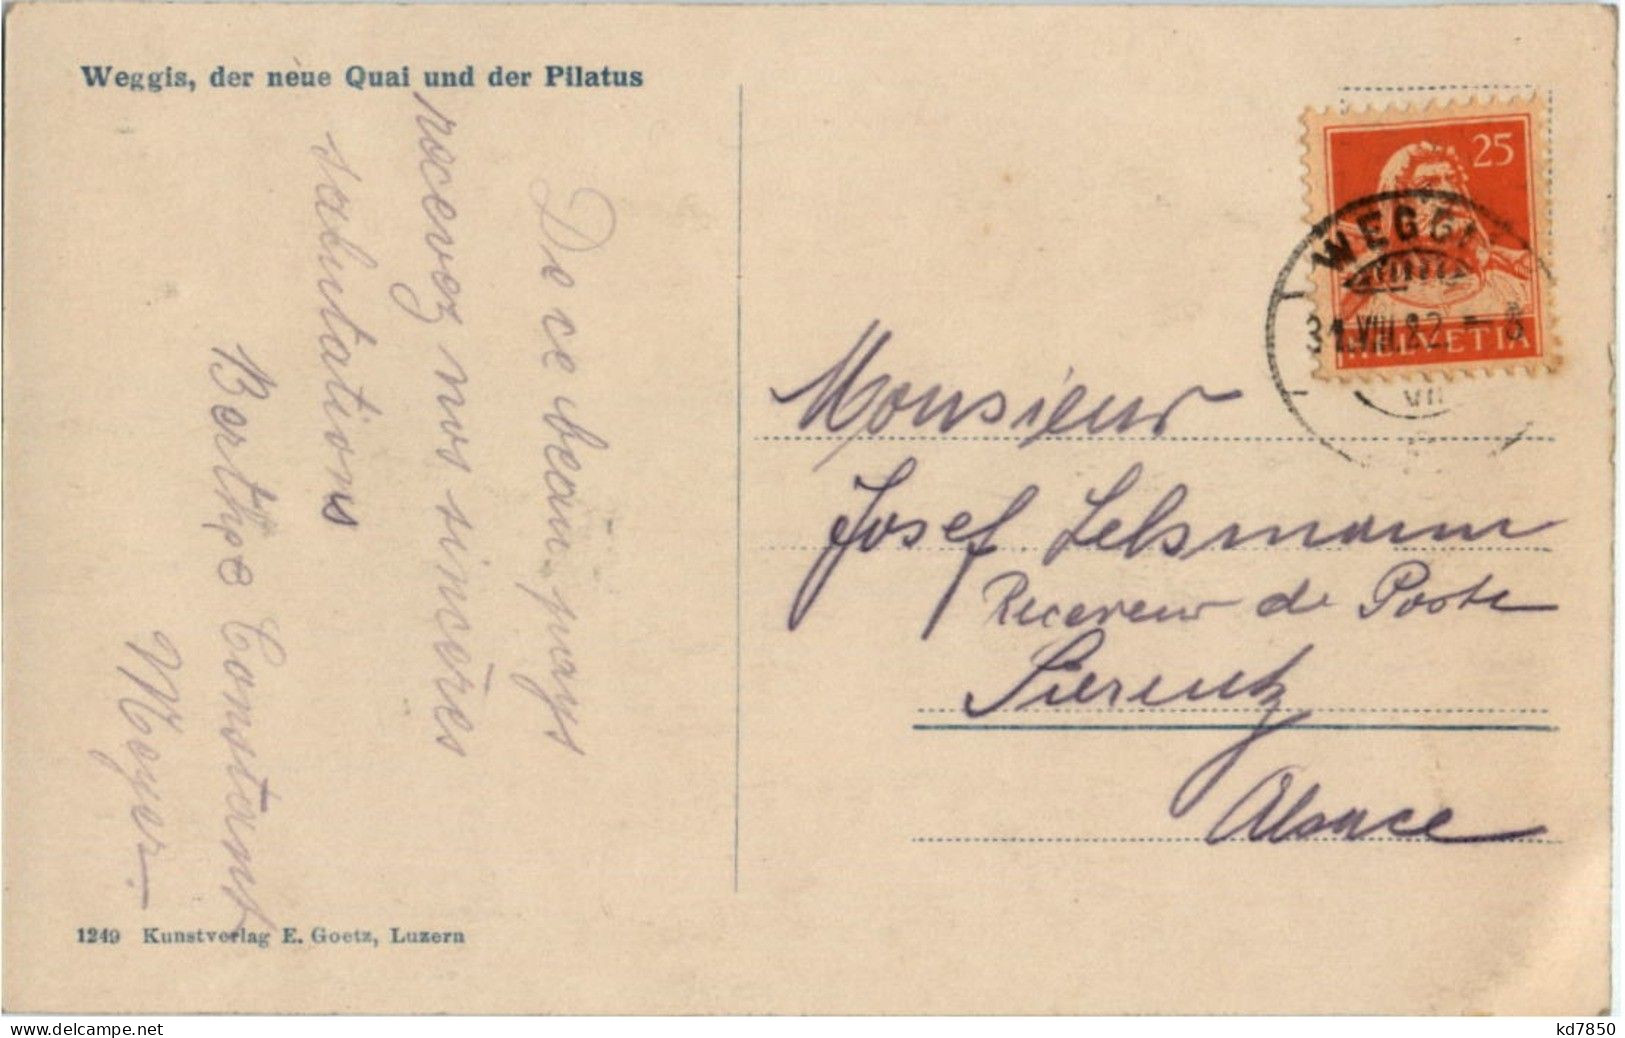 Weggis, der neue Quai und der Pilatus
De ce beau pays
recevez nos sincères
salutations
Berthe Constant
Meyer.
1249 Kunstverlag E. Goetz, Luzern
25
HELVETIA
WEGGI
31.VIII.22.-8
VII
Monsieur
Josef Lehmann
Receveur de Poste
Sierentz
Alsace
www.delcampe.net
kd7850